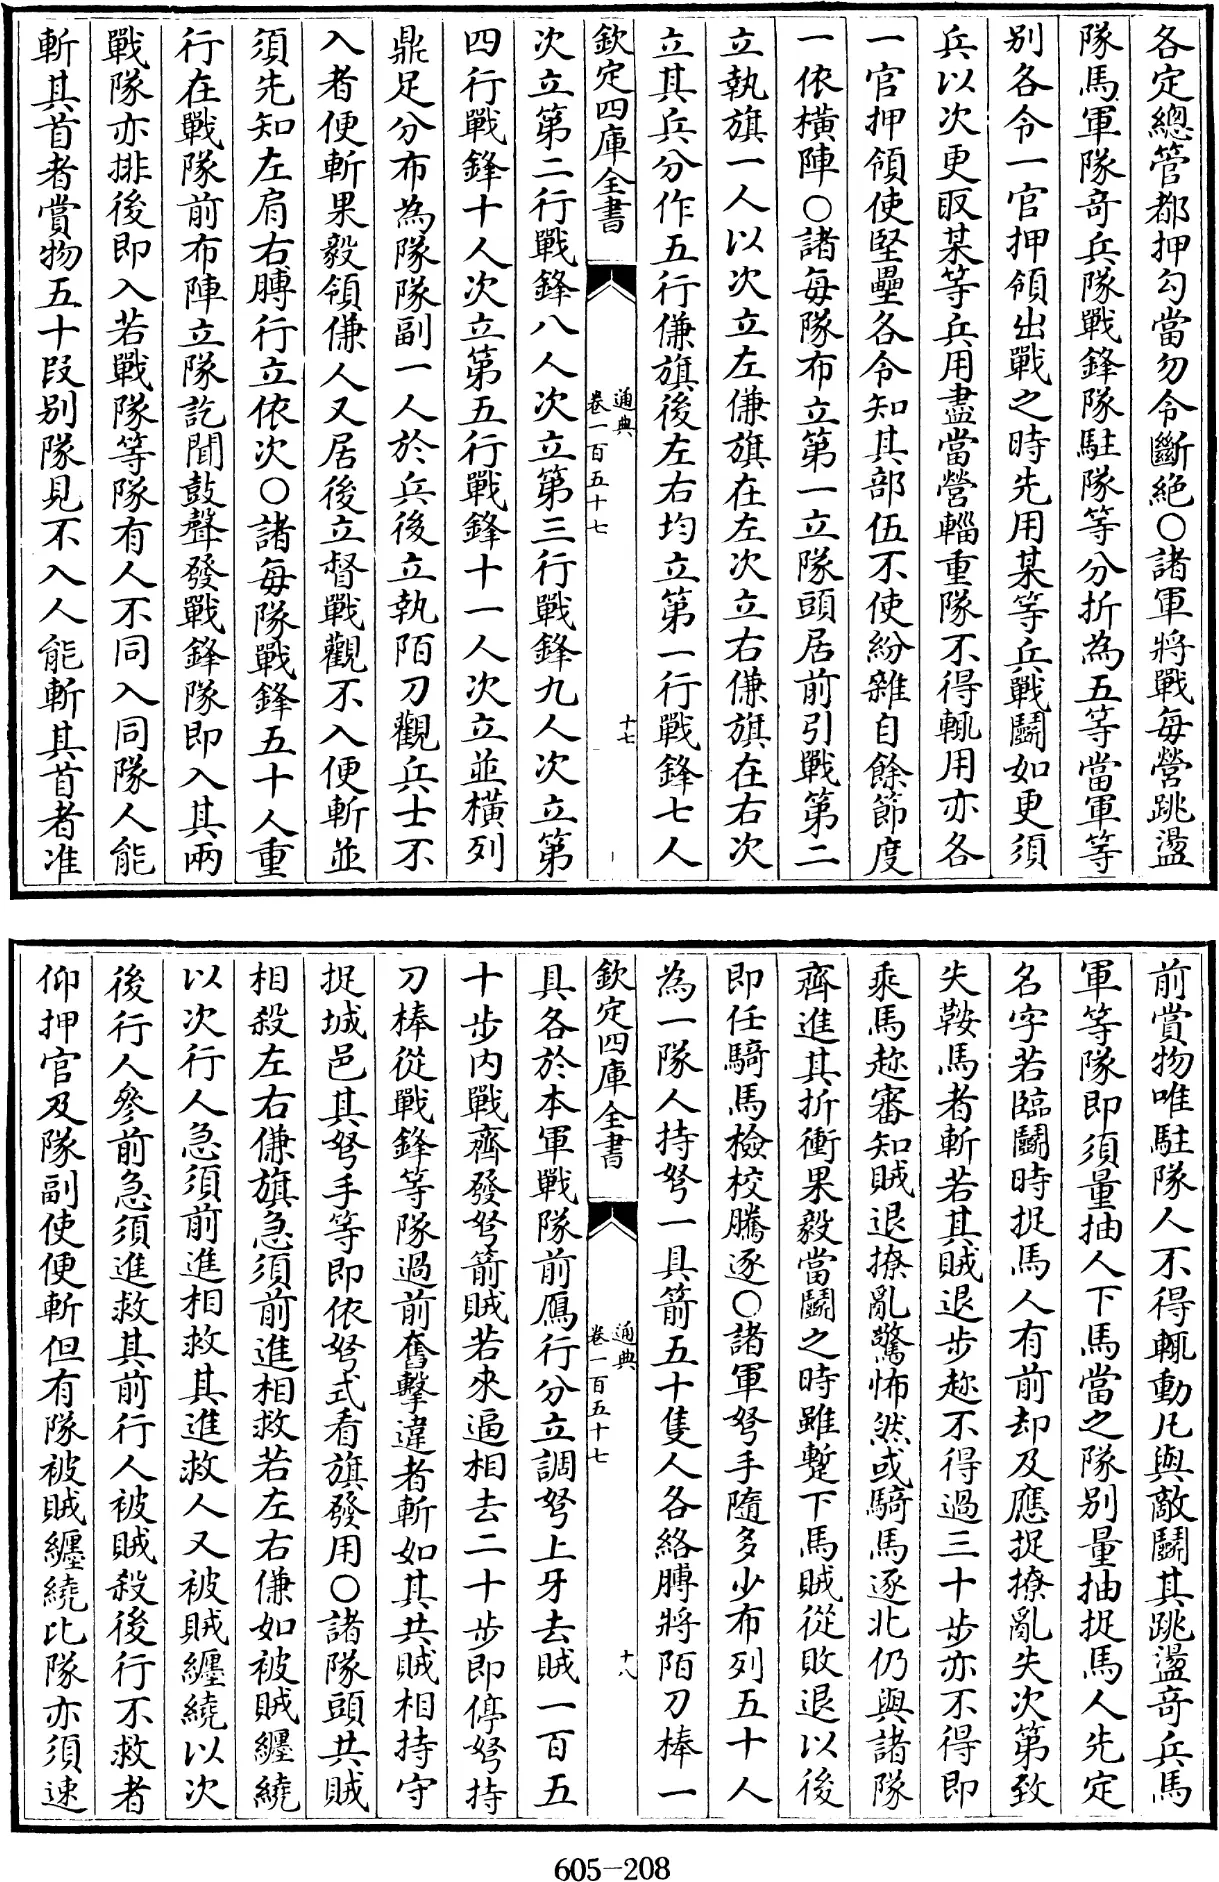 各定總管都押勾當勿令斷絕○諸軍將戰每營跳盪
隊馬軍隊奇兵隊戰鋒隊駐隊等分折為五等當軍等
別各令一官押領出戰之時先用某等兵戰鬭如更須
兵以次更取某等兵用盡當營輜重隊不得輒用亦各
一官押領使堅壘各令知其部伍不使紛雜自餘節度
一依橫陣○諸每隊布立第一立隊頭居前引戰第二
立執旗一人以次立左傔旗在左次立右傔旗在右次
立其兵分作五行傔旗後左右均立第一行戰鋒七人
欽定四庫全書
通典
卷一百五十七
十七
次立第二行戰鋒八人次立第三行戰鋒九人次立第
四行戰鋒十人次立第五行戰鋒十一人次立並橫列
鼎足分布為隊隊副一人於兵後立執陌刀觀兵士不
入者便斬果毅領傔人又居後立督戰觀不入便斬並
須先知左肩右膊行立依次○諸每隊戰鋒五十人重
行在戰隊前布陣立隊訖聞鼓聲發戰鋒隊即入其兩
戰隊亦排後即入若戰隊等隊有人不同入同隊人能
斬其首者賞物五十段別隊見不入人能斬其首者准
前賞物唯駐隊人不得輒動凡與敵鬭其跳盪奇兵馬
軍等隊即須量抽人下馬當之隊別量抽捉馬人先定
名字若臨鬭時捉馬人有前却及應捉撩亂失次第致
失鞍馬者斬若其賊退步趂不得過三十步亦不得即
乘馬趂審知賊退撩亂驚怖然或騎馬逐北仍與諸隊
齊進其折衝果毅當鬭之時雖蹔下馬賊從敗退以後
即任騎馬檢校騰逐○諸軍弩手隨多少布列五十人
為一隊人持弩一具箭五十隻人各絡膊將陌刀棒一
欽定四庫全書
通典
卷一百五十七
十八
具各於本軍戰隊前鴈行分立調弩上牙去賊一百五
十步内戰齊發弩箭賊若來逼相去二十步即停弩持
刀棒從戰鋒等隊過前奮擊違者斬如其共賊相持守
捉城邑其弩手等即依弩式看旗發用○諸隊頭共賊
相殺左右傔旗急須前進相救若左右傔如被賊纏繞
以次行人急須前進相救其進救人又被賊纏繞以次
後行人參前急須進救其前行人被賊殺後行不救者
仰押官及隊副使便斬但有隊被賊纏繞比隊亦須速
605-208